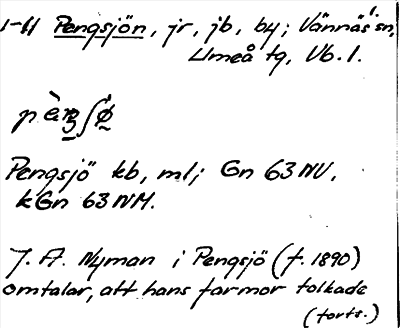 1-11 Pengsjön, jr, jb, by; Vännäs sn,
Umeå tg, Vb. l.
Pengsjö kb, ml; Gn 63 NV,
kGn 63 NM.
J. A. Nyman i Pengsjö (f. 1890)
omtalar, att hans farmor tolkade
(forts.)